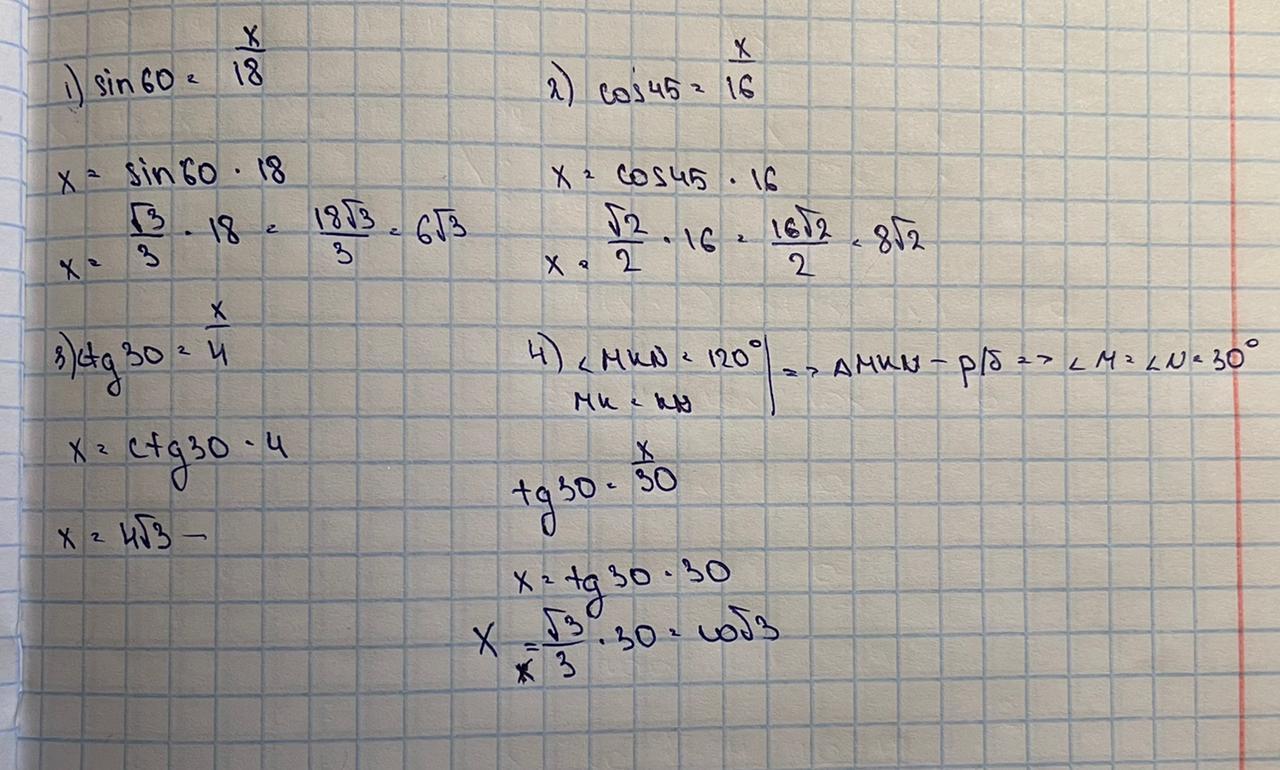 1) sin60 = x/18
x = sin60 · 18
x = √3/3 · 18 = 18√3/3 = 6√3
2) cos45 = x/16
x = cos45 · 16
x = √2/2 · 16 = 16√2/2 = 8√2
3) ctg30 = x/4
x = ctg30 · 4
x = 4√3 —
4) ∠MKN = 120° | => ΔMKN – р/б => ∠M = ∠N = 30°
MK = KN
tg30 = x/30
x = tg30 · 30
x = √3/3 · 30 = 10√3